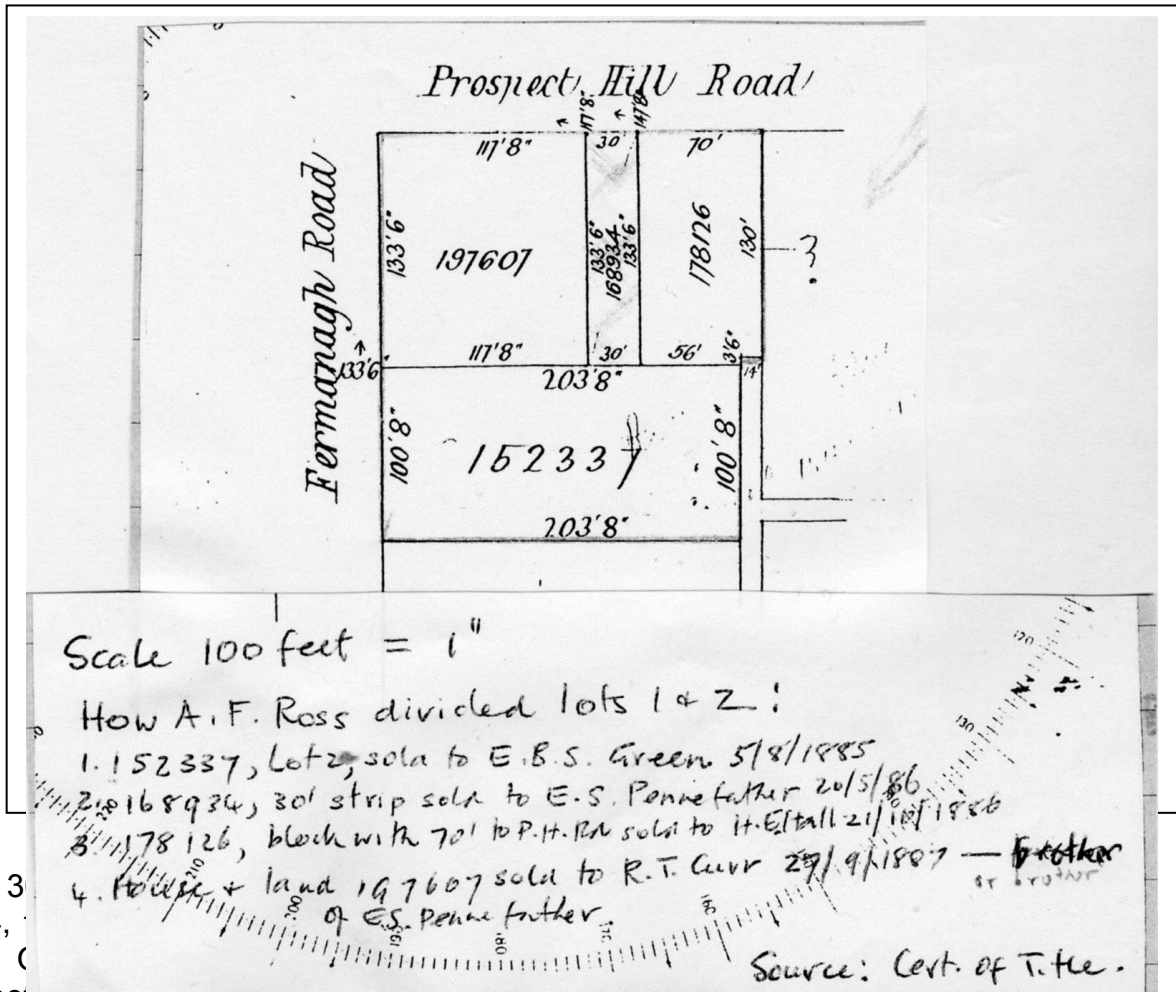 Prospect Hill Road
117'8"
147'8"
117'8"
30'
70'
Fermanagh Road
133'6"
197607
133'6"
168934
133'6"
178126
130'
?
133'6
117'8"
30'
56'
3'6"
14'
203'8"
100'8"
152337
100'8"
203'8"
Scale 100 feet = 1"
How A.F. Ross divided lots 1 & 2:
1. 152337, Lot 2, sold to E.B.S. Green 5/8/1885
2. 168934, 30' strip sold to E.S. Pennefather 20/5/86
3. 178126, block with 70' to P.H. Rd sold to 1886
4. House & land 197607 sold to R.T. Curr 27/9/1887 —
or brother
of E.S. Pennefather
Source: Cert. of Title.
120
130
160
170
180
190
200
210